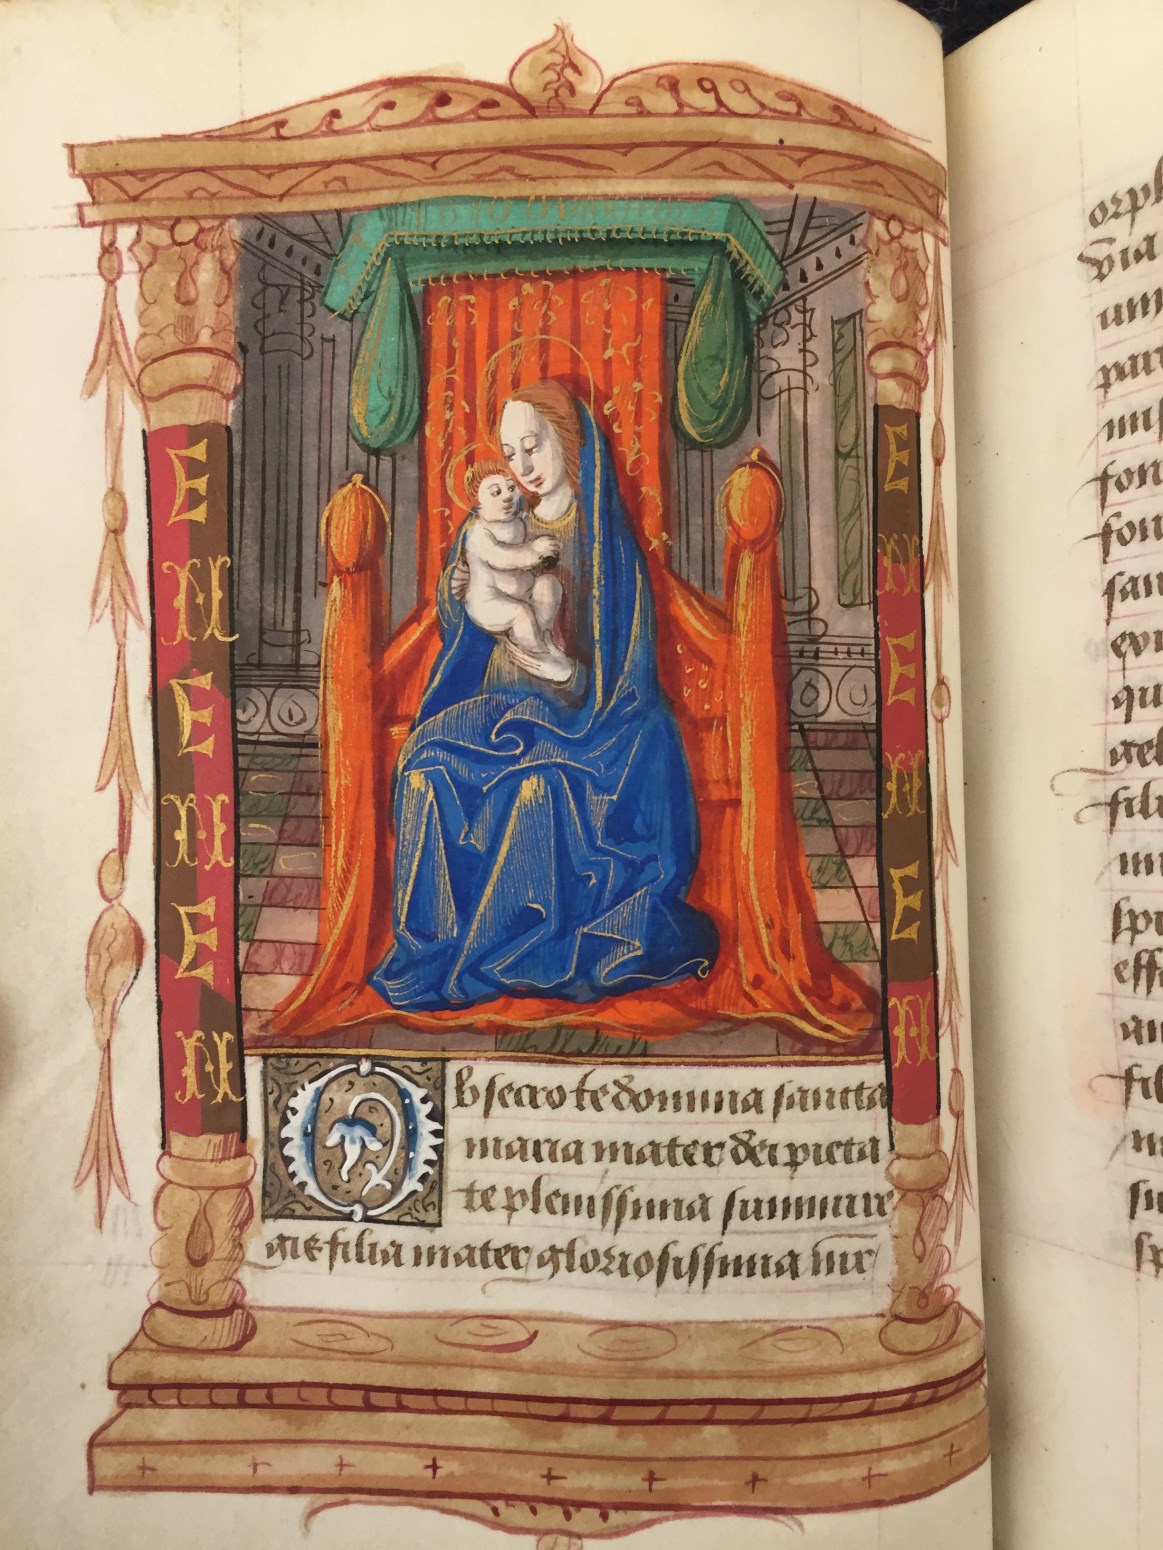 E
N
E
N
E
N
E
N
E
N
E
N
Obsecro te domina sancta
maria mater dei pieta
te plenissima summi re
gis filia mater gloriosissima
orph
via
um
par
fon
fon
san
qu
gel
fili
spi
effi
an
fil
sp